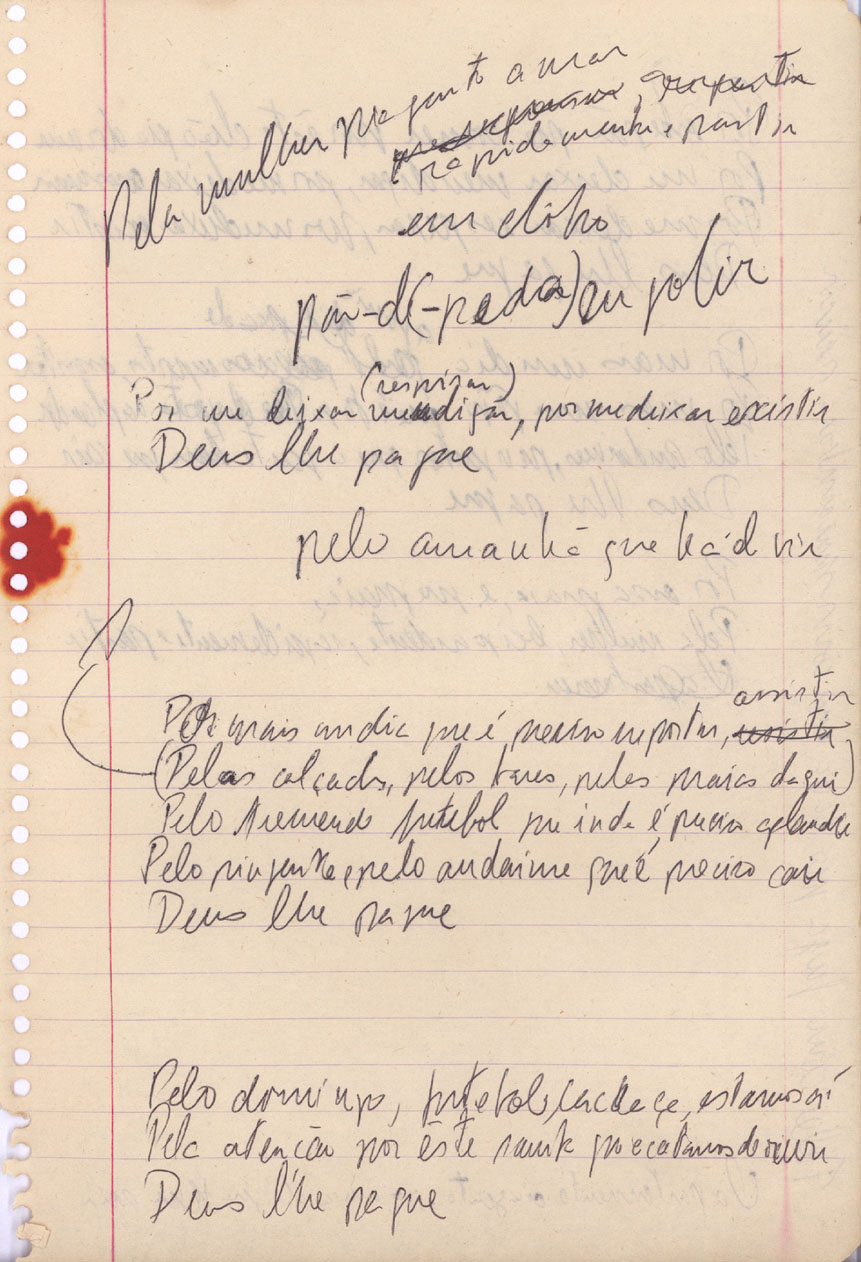 Pela mulher pra gente amar
rapidamente e partir
endoko
pão-de(-pedra) engolir
(respirar)
Por me deixar mendigar, por me deixar existir
Deus lhe pague
pelo amanhã que há d vir
assistir
Por mais um dia que é preciso suportar,
(Pelas calçadas, pelos bares, pelas praias daqui)
Pelo tremendo futebol que inda é preciso aplaudir
Pelo pingente e pelo andaime que é preciso cair
Deus lhe pague
Pelo domingo, futebol, cachaça, estamos aí
Pela atenção por êste samba que acabamos de ouvir
Deus lhe pague